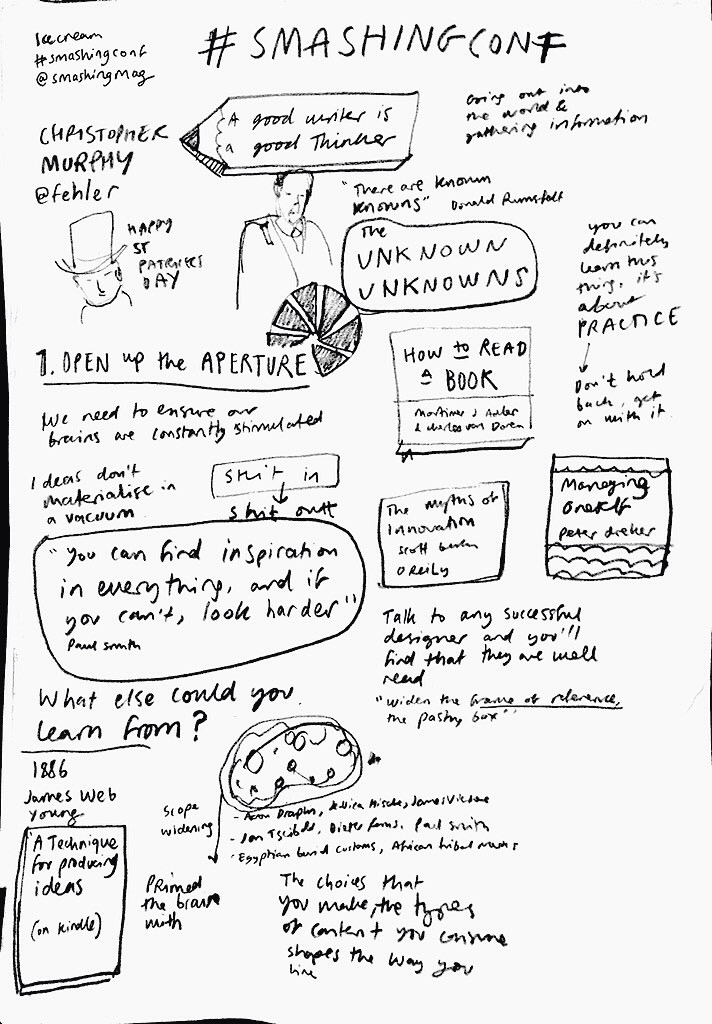 Icecream
#smashingconf
@smashingmag
#SMASHINGCONF
CHRISTOPHER
MURPHY
@fehler
A good writer is
a good Thinker
Going out into
the world &
gathering information
HAPPY
ST
PATRICKS
DAY
"There are known
knowns" Donald Rumsfalt
The
UNKNOWN
UNKNOWNS
you can
definitely
learn this
thing, it's
about
PRACTICE
Don't hold
back, get
on with it.
1. OPEN up the APERTURE
We need to ensure our
brains are constantly stimulated
HOW to READ
A BOOK
Mortimer J Adler
& Charles van Doren
Ideas don't
materialise in
a vacuum
shit in
shit out
The myths of
innovation
scott berkun
OReilly
Managing
oneself
Peter
"You can find inspiration
in everything, and if
you can't, look harder"
Paul smith
Talk to any successful
designer and you'll
find that they are well
read
"widen the frame of reference,
the pastry box"
What else could you
learn from?
1886
James Web
Young
'A Technique
for producing
ideas
(on kindle)
Scope
widening
- Aaron Draplin, Jessica Hische, James Victore
- Jan Tschibold, Dieter Rams, Paul Smith
- Egyptian burial customs, African tribal masks
PRimed
the brain
with
The choices that
you make, the types
of content you consume
shapes the way you